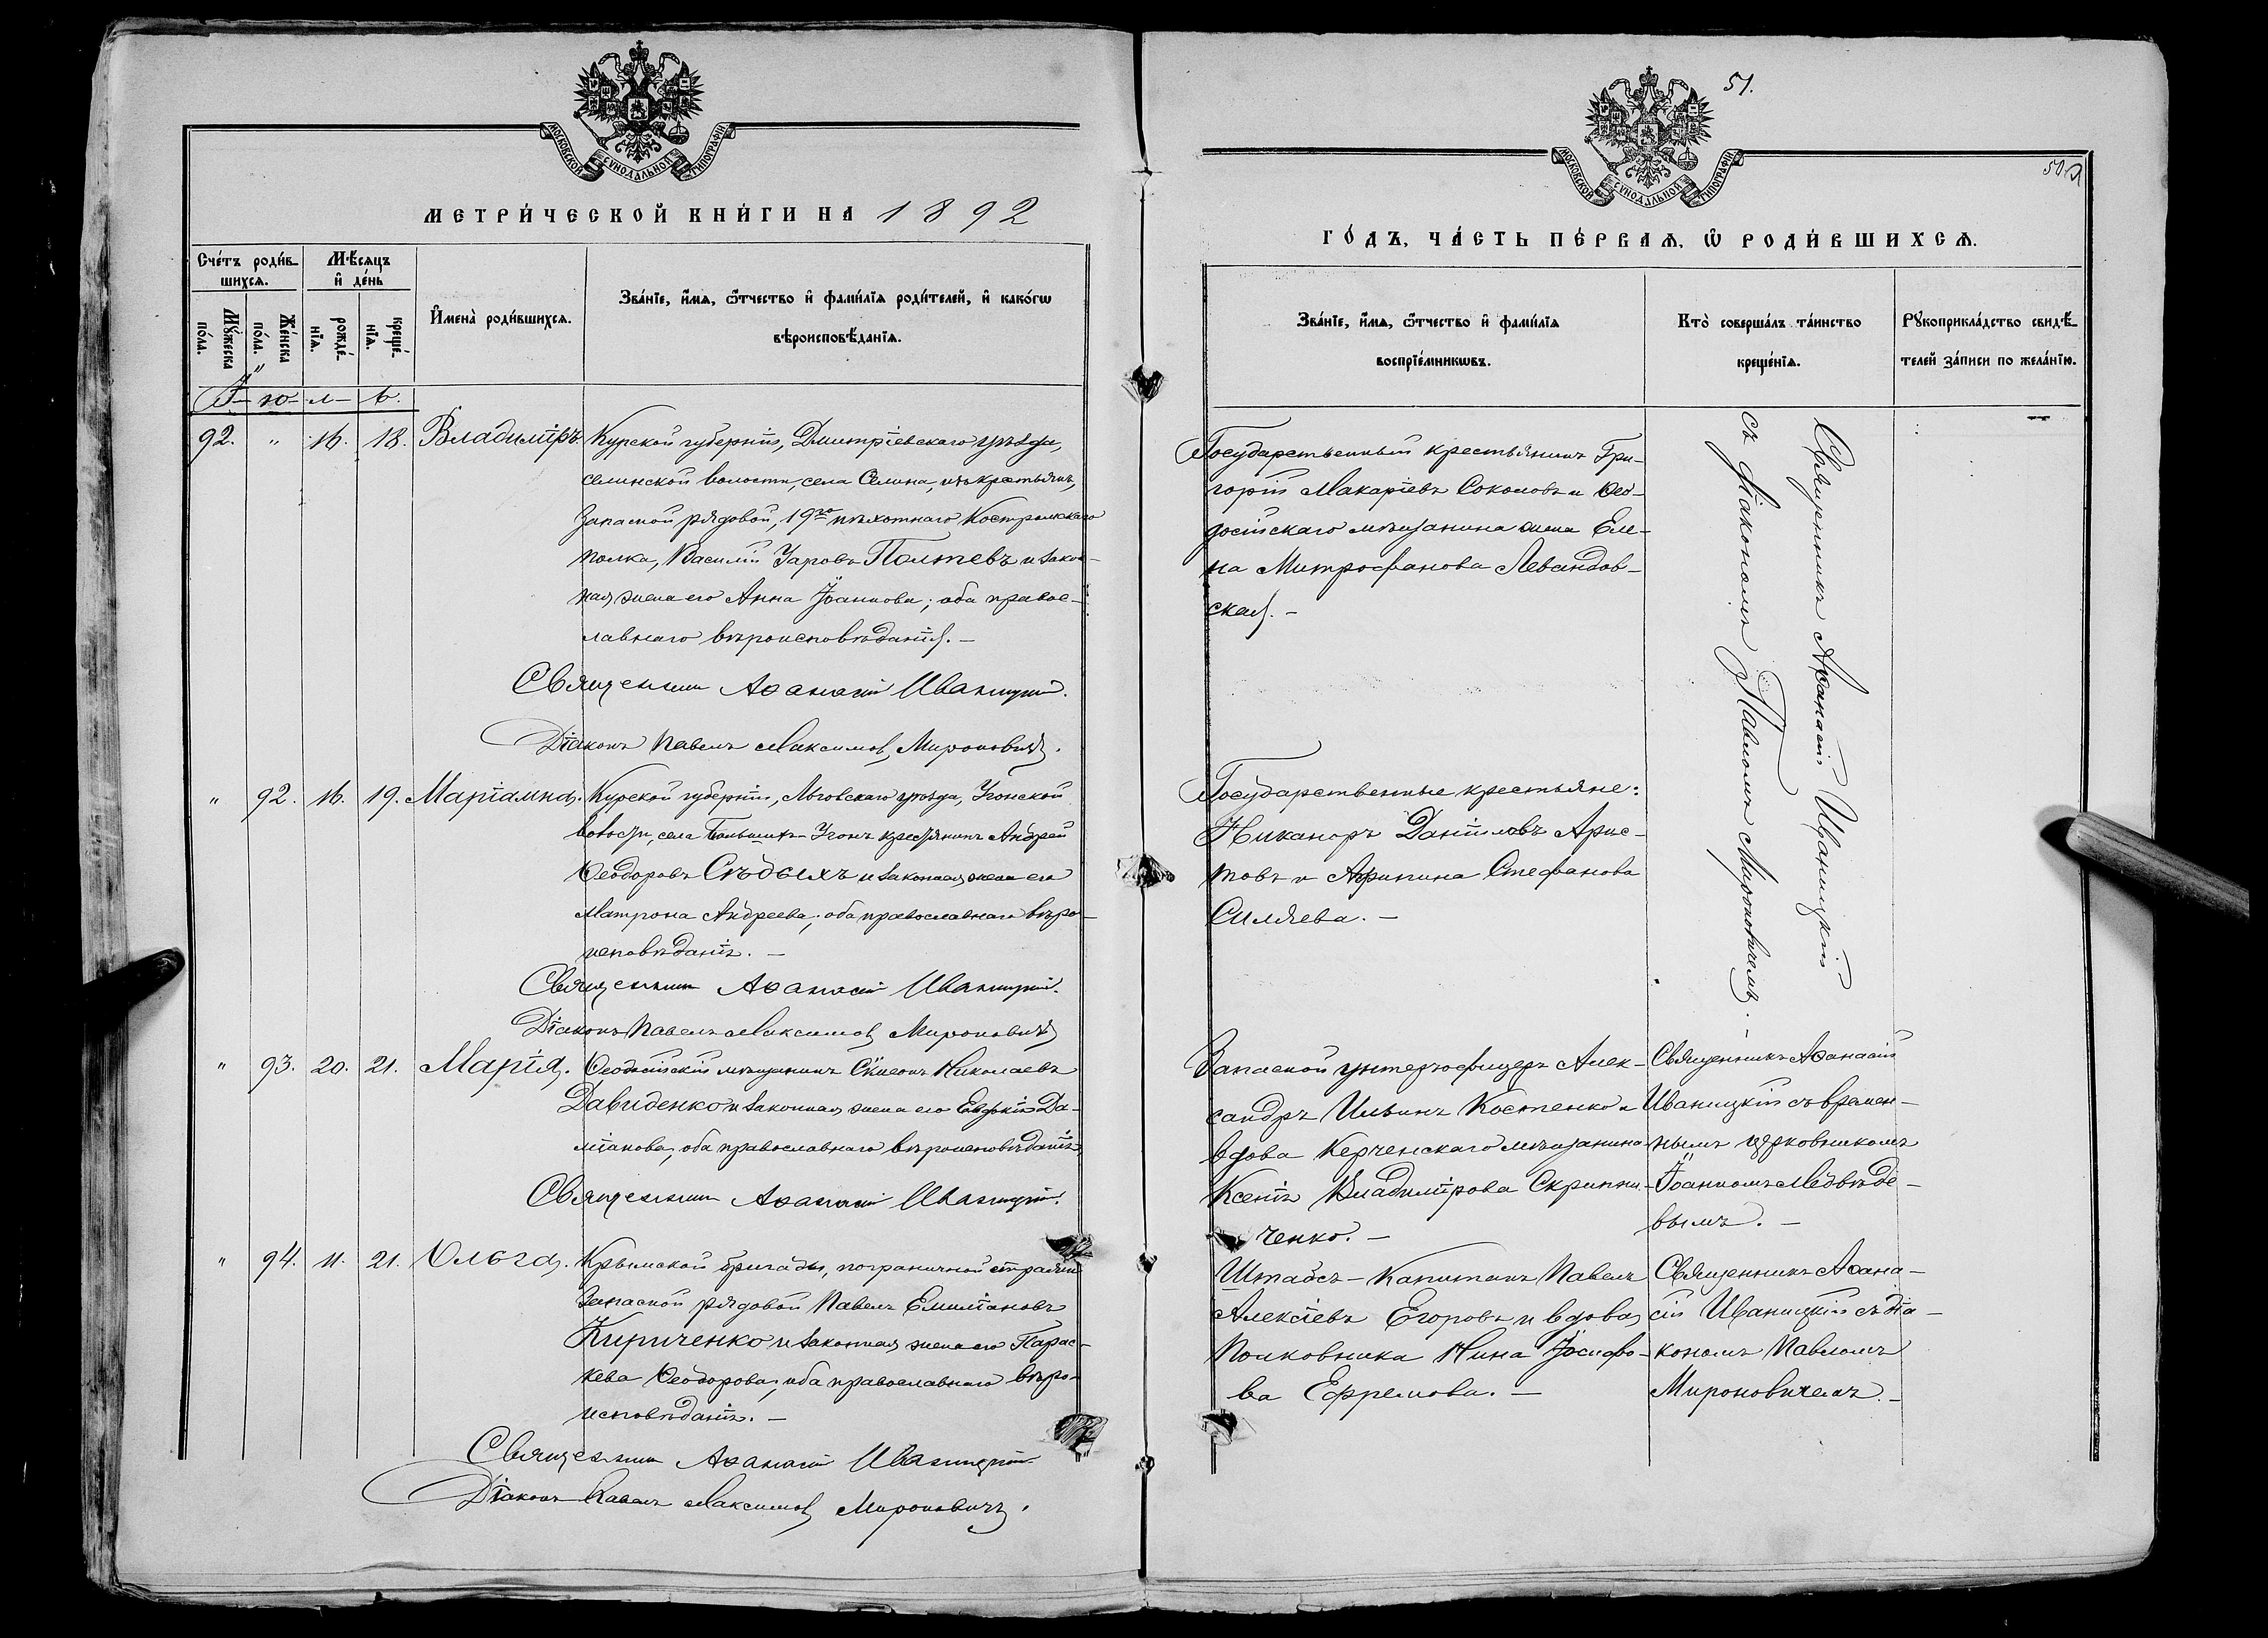 МОСКОВСКОЙ СУНОДАЛЬНОЙ ТИПОГРАФІИ
МЕТРИ́ЧЕСКОЙ КНИ́ГИ НА 1892
Сче́тъ роди́в-
шихсѧ.
Мѣ́сѧцъ
и҆ де́нь
Мꙋ́жеска
по́ла.
Же́нска
по́ла.
рожде́-
нїѧ.
креще́-
нїѧ.
И҆мена̀ роди́вшихсѧ.
Зва́нїе, и҆́мѧ, ѻ҆́тчество и҆ фами́лїѧ роди́телей, и҆ како́гѡ
вѣроисповѣ́данїѧ.
І- ю- л- ь.
92. " 16. 18. Владиміръ. Курской губерніи, Дмитріевскаго уѣзда,
селинской волости, села Селина, изъ крестьянъ,
Запасной рядовой, 19го пѣхотнаго Костромскаго
полка, Василій Уаровъ Полтевъ и закон-
ная жена его Анна Іоаннова; оба правос-
лавнаго вѣроисповѣданія. –
Священникъ Аѳанасій Иваницкій.
Діаконъ Павелъ Максимов Мироновичъ.
" 92. 16. 19. Маріамна. Курской губерніи, Льговскаго уѣзда, Угонской
волости, села Большихъ-Угонъ крестьянинъ Андрей
Ѳеодоровъ Сѣдыхъ и законная жена его
Матрона Андреева; оба православнаго вѣро-
исповѣданія. –
Священникъ Аѳанасій Иваницкій.
Діаконъ Павелъ Максимов Мироновичъ
" 93. 20. 21. Марія. Ѳеодосійскій мѣщанинъ Сѵмеонъ Николаевъ
Давиденко и законная жена его Евфимія Да-
міанова; оба православнаго вѣроисповѣданія
Священникъ Аѳанасій Иваницкій.
" 94. 11. 21. Ольга. Крымской бригады, пограничной стражи
Запасной рядовой Павелъ Емиліановъ
Кириченко и законная жена его Парас-
кева Ѳеодорова; оба православнаго вѣро-
исповѣданія. –
Священникъ Аѳанасій Иваницкій
Діаконъ Павелъ Максимов Мироновичъ.
51.
50
МОСКОВСКОЙ СУНОДАЛЬНОЙ ТИПОГРАФІИ
ГО́ДЪ, ЧА́СТЬ ПЕ́РВАѦ, Ѡ҆ РОДИ́ВШИХСѦ.
Зва́нїе, и҆́мѧ, ѻ҆́тчество и҆ фами́лїѧ
воспрїе́мникѡвъ.
Кто̀ соверша́лъ та́инство
креще́нїѧ.
Рꙋкоприкла́дство свидѣ́-
телей за́писи по жела́нїю.
Государственный крестьянинъ Гри-
горій Макаріевъ Соколовъ и Ѳео-
досійскаго мѣщанина жена Еле-
на Митрофанова Левандов-
ская. –
Священникъ Аѳанасій Иваницкій
съ діакономъ Павломъ Мироновичемъ. –
Государственные крестьяне:
Никаноръ Даніиловъ Арис-
товъ и Агрипина Стефанова
Силяева. –
Запасной унтеръ-офицеръ Алек-
сандръ Ильинъ Костенко и
вдова Керченскаго мѣщанина
Ксенія Владимірова Скрипни-
ченко. –
Священникъ Аѳанасій
Иваницкій съ времен-
нымъ церковникомъ
Іоанномъ Медвѣде-
вымъ. –
Штабсъ-Капитанъ Павелъ
Алексіевъ Егоровъ и вдова
Полковника Нина Іосифо-
ва Ефремова. –
Священникъ Аѳана-
сій Иваницкій съ діа-
кономъ Павломъ
Мироновичемъ. –